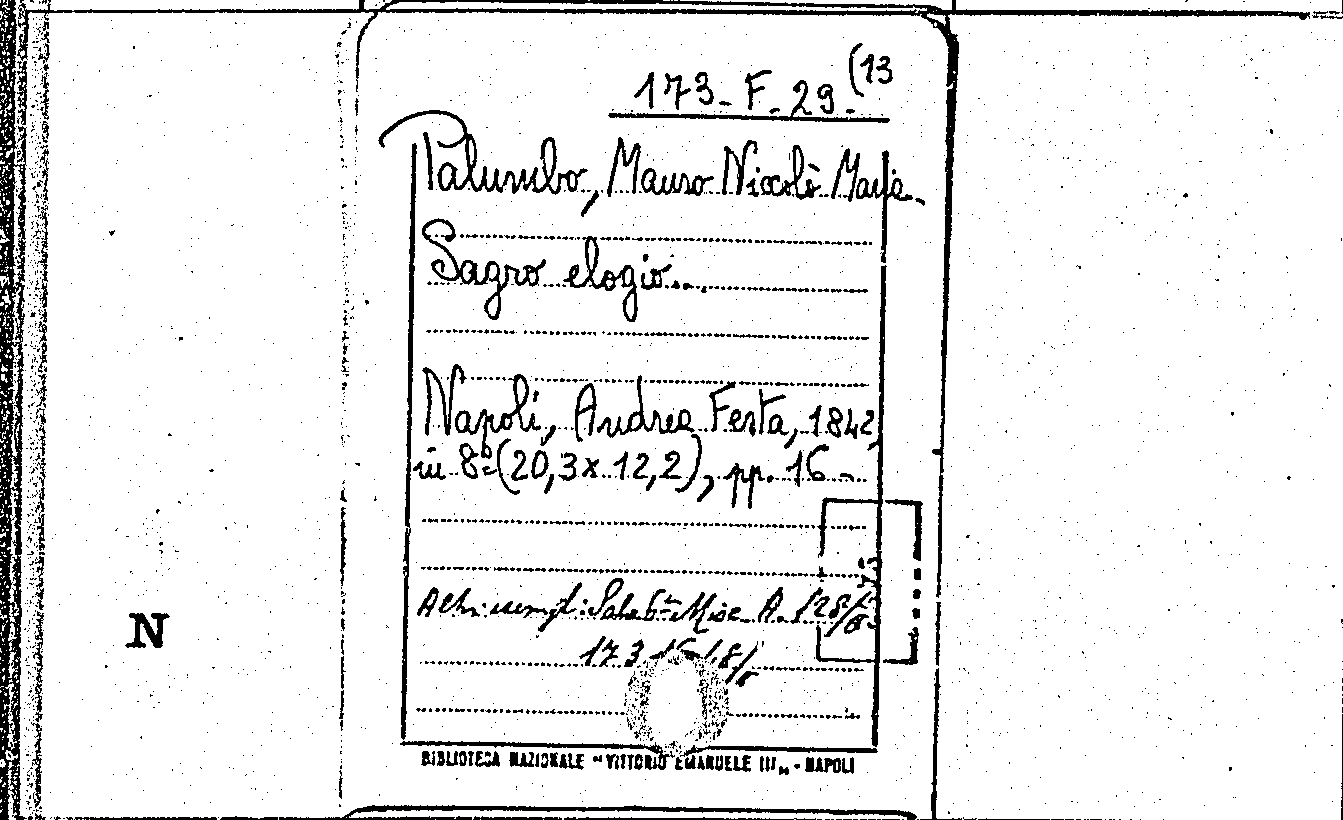 173-F.29.(13
Palumbo, Mauro Niccolò Maria.
Sagro elogio...
Napoli, Andrea Festa, 1842,
in 8º (20,3x12,2), pp. 16.
Altri esempl: Sala 6ª Misc. A. 128/
173
N
BIBLIOTECA NAZIONALE "VITTORIO EMANUELE III" - NAPOLI